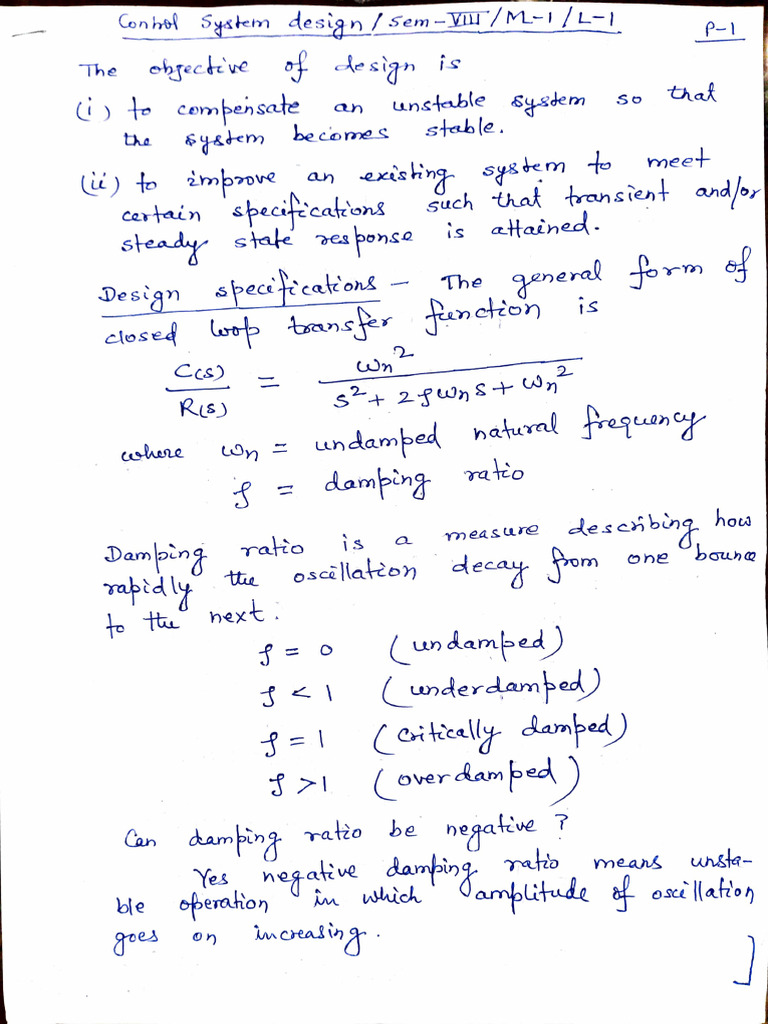 Control System design / Sem-VIII / M-1 / L-1
P-1
The objective of design is
(i) to compensate an unstable system so that
the system becomes stable.
(ii) to improve an existing system to meet
certain specifications such that transient and/or
steady state response is attained.
Design specifications - The general form of
closed loop transfer function is
C(s)/R(s) = ωn²/(s² + 2ζωns + ωn²)
where ωn = undamped natural frequency
ζ = damping ratio
Damping ratio is a measure describing how
rapidly the oscillation decay from one bounce
to the next.
ζ = 0 (undamped)
ζ < 1 (underdamped)
ζ = 1 (critically damped)
ζ > 1 (overdamped)
Can damping ratio be negative?
Yes negative damping ratio means unsta-
ble operation in which amplitude of oscillation
goes on increasing.
]